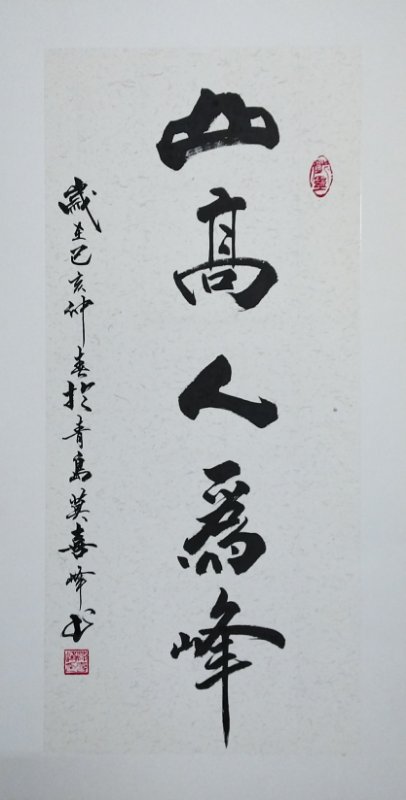 山高人爲峰
歲在己亥仲春於青島莫喜峰书